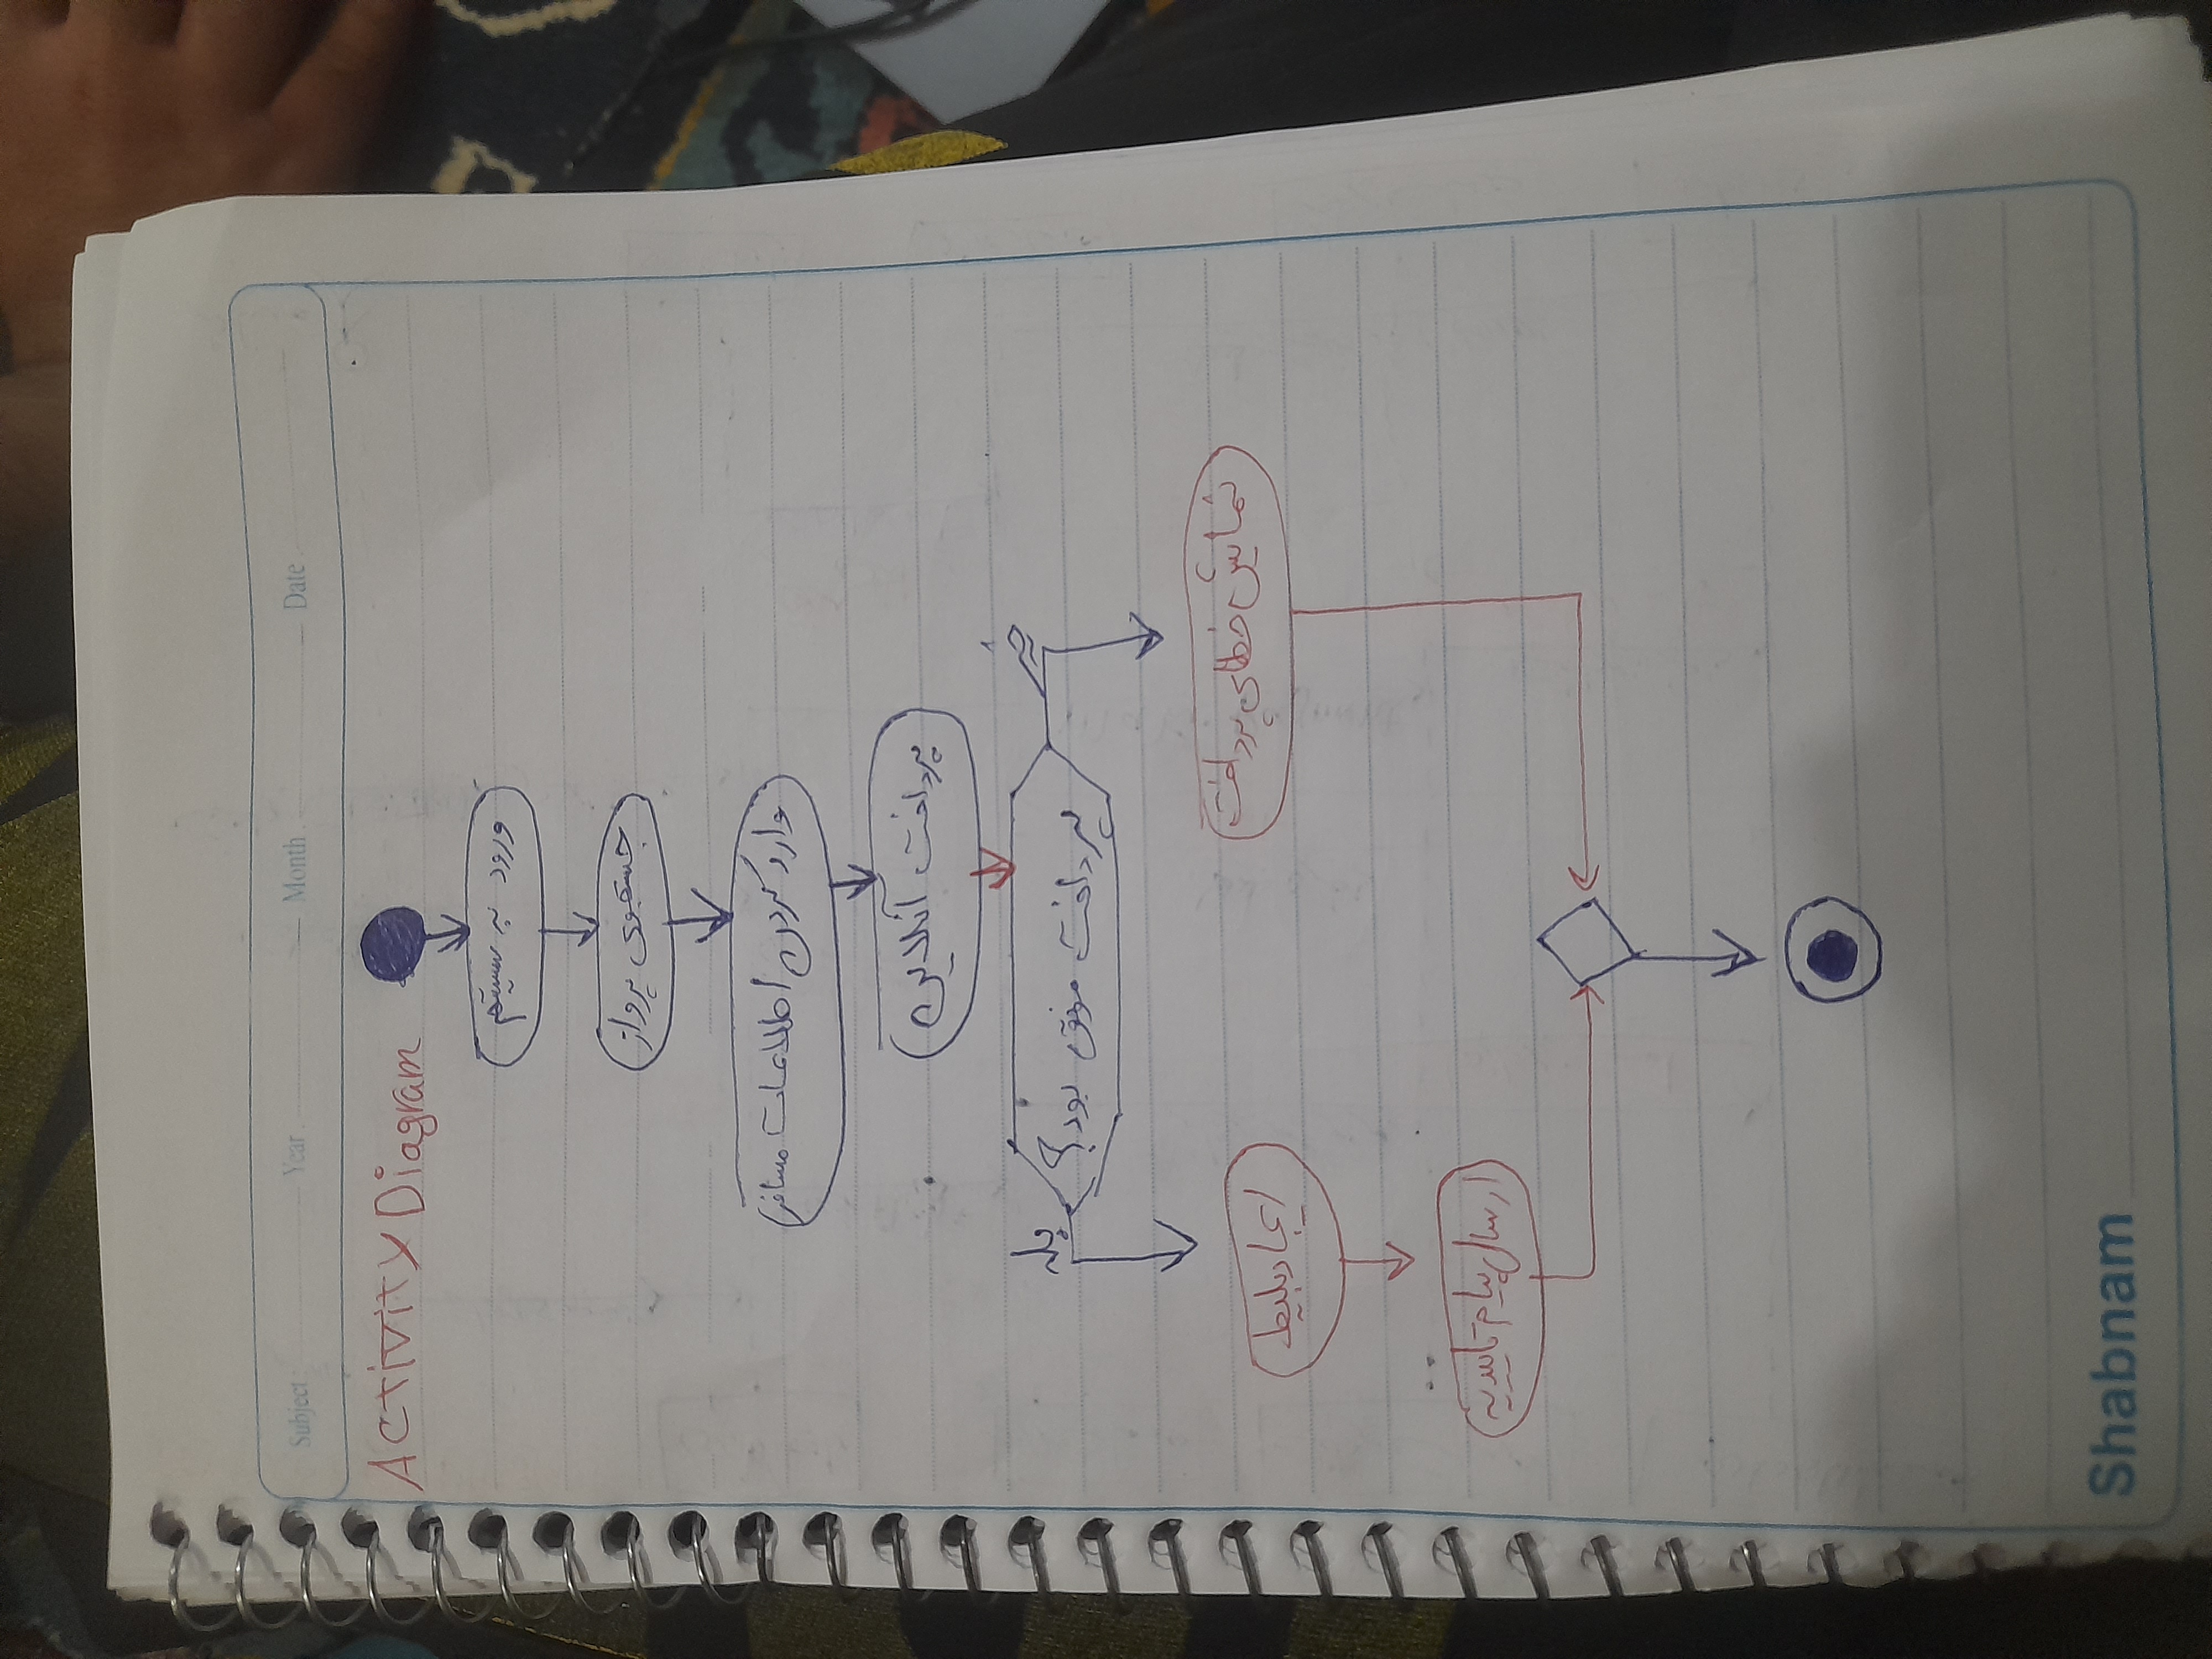 Subject: Year Month Date
ACTIVITY Diagram
ورود به سیستم
جستجوی پرواز
وارد کردن اطلاعات مسافر
پرداخت آنلاین
پرداخت موفق بود؟
بله
خیر
نمایش خطای پرداخت
ایجاد بلیط
ارسال پیام تاییدیه
Shabnam